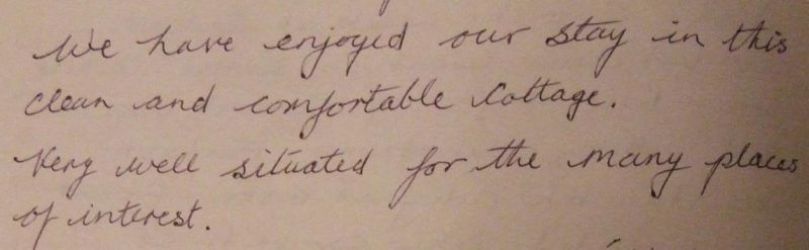 We have enjoyed our stay in this
clean and comfortable Cottage.
Very well situated for the many places
of interest.